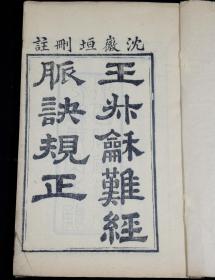 沈微垣刪註
王尗龢難經
脈訣規正